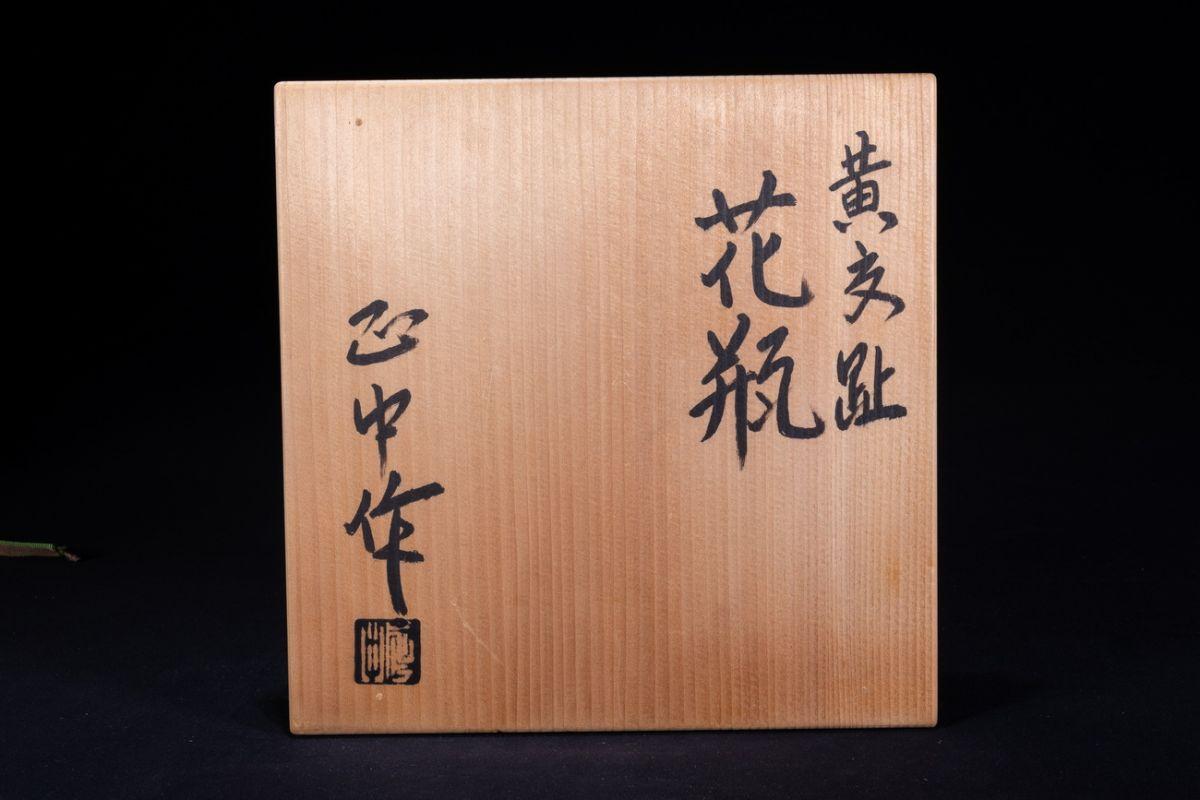 黄交趾
花瓶
正中作